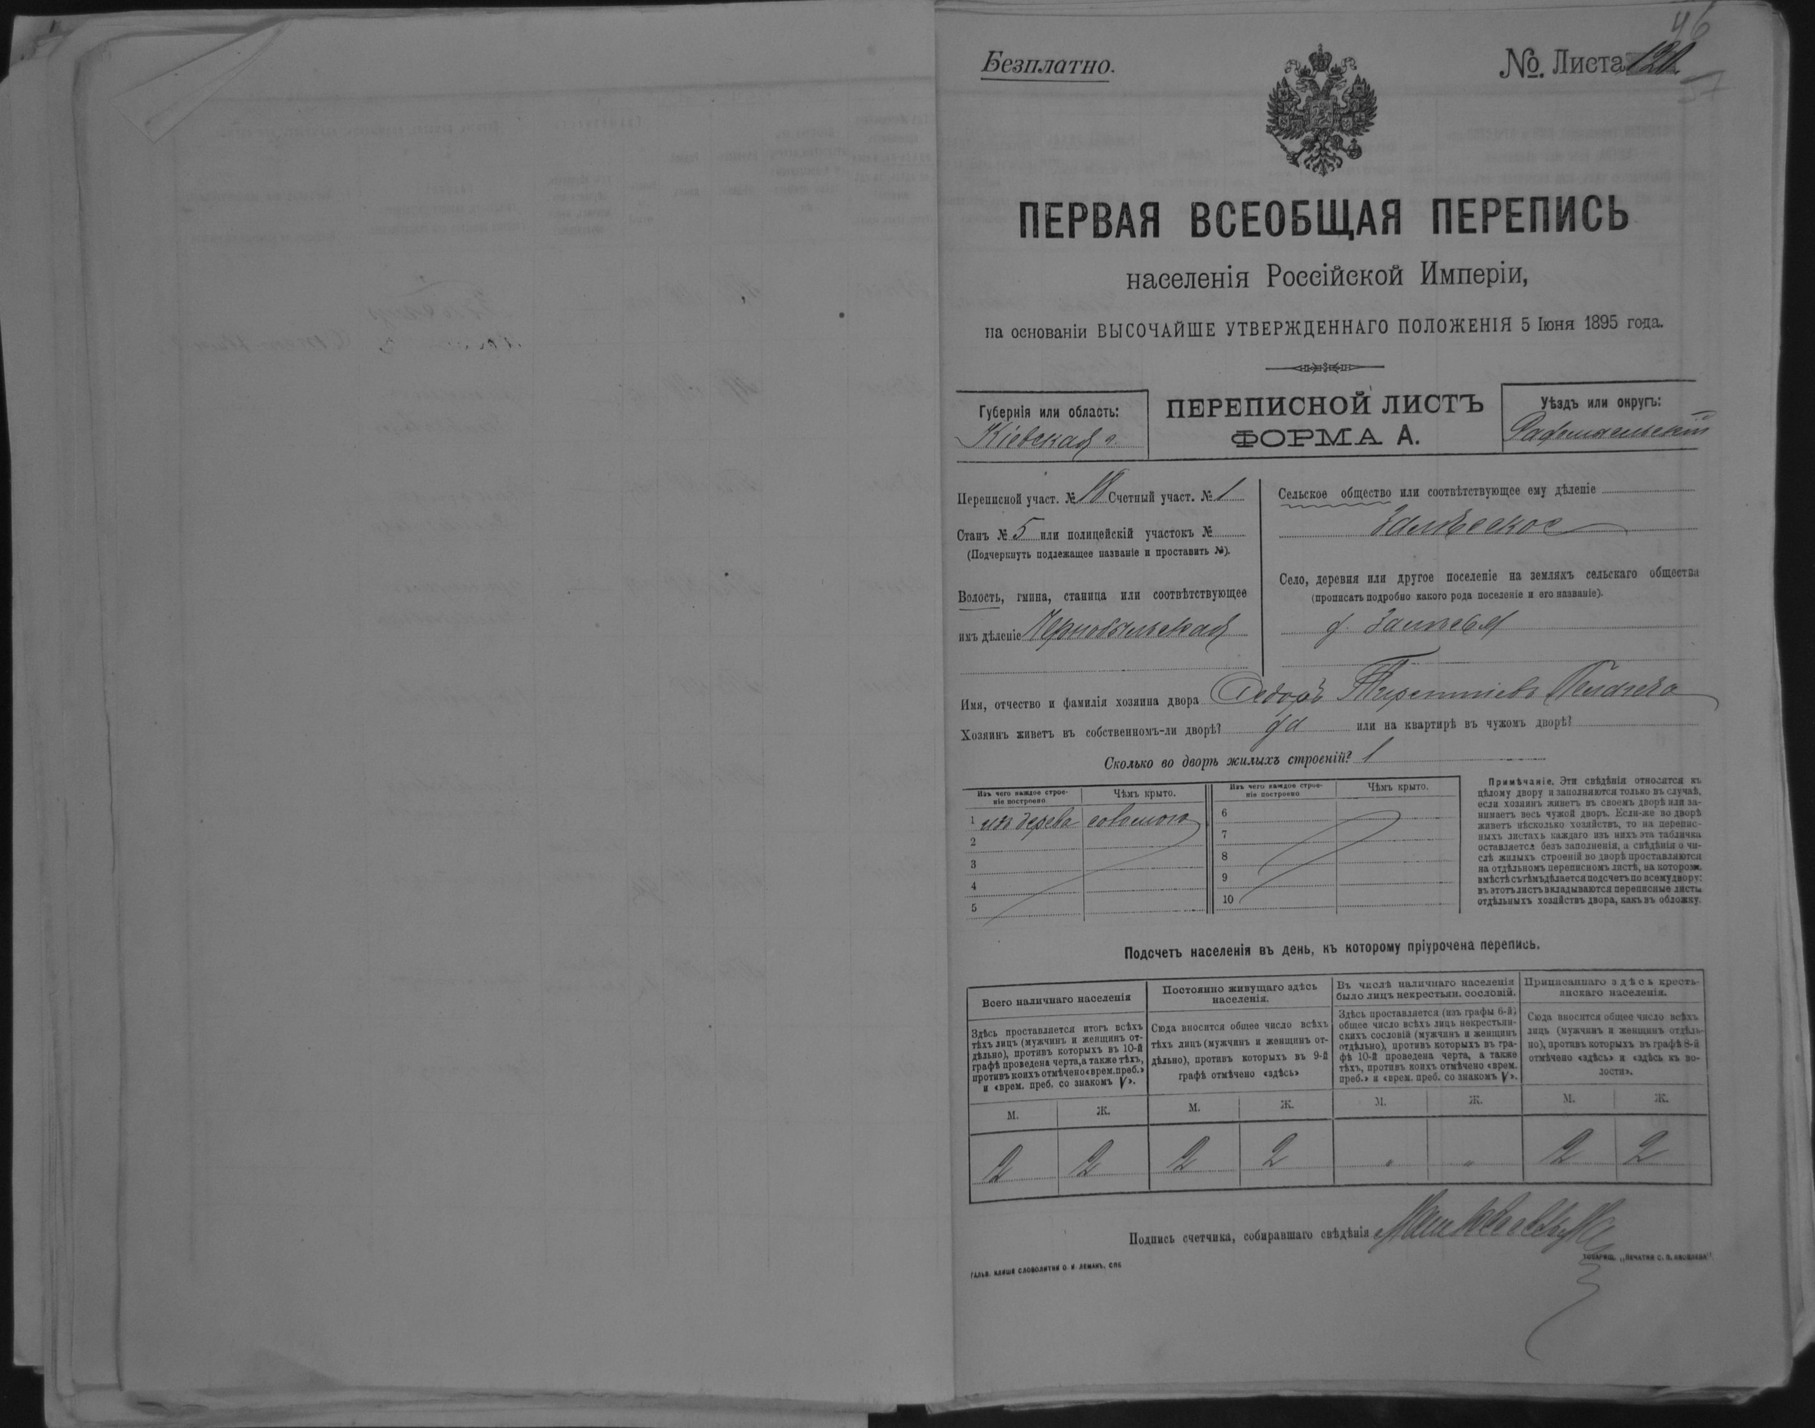 46
Безплатно.
№. Листа 120
57
ПЕРВАЯ ВСЕОБЩАЯ ПЕРЕПИСЬ
населенія Россійской Имперіи,
на основаніи ВЫСОЧАЙШЕ УТВЕРЖДЕННАГО ПОЛОЖЕНІЯ 5 Іюня 1895 года.
Губернія или область:
Кіевская
ПЕРЕПИСНОЙ ЛИСТЪ
ФОРМА А.
Уѣздъ или округъ:
Радомысльскій
Переписной участ. № 18 Счетный участ. № 1
Станъ № 5 или полицейскій участокъ №
(Подчеркнуть подлежащее названіе и проставить №).
Волость, гмина, станица или соотвѣтствующее
имъ дѣленіе Чернобыльская
Сельское общество или соотвѣтствующее ему дѣленіе
Залѣсское
Село, деревня или другое поселеніе на земляхъ сельскаго общества
(прописать подробно какого рода поселеніе и его названіе).
д. Залѣсья
Имя, отчество и фамилія хозяина двора Федоръ Терентіевъ
Хозяинъ живетъ въ собственномъ-ли дворѣ? да или на квартирѣ въ чужомъ дворѣ?
Сколько во дворѣ жилыхъ строеній? 1
Изъ чего каждое строеніе построено
Чѣмъ крыто.
Изъ чего каждое строеніе построено
Чѣмъ крыто.
1 изъ дерева соломою
2
3
4
5
6
7
8
9
10
Примѣчаніе. Эти свѣдѣнія относятся къ
цѣлому двору и заполняются только въ случаѣ,
если хозяинъ живетъ въ своемъ дворѣ или за-
нимаетъ весь чужой дворъ. Если-же во дворѣ
живетъ нѣсколько хозяйствъ, то на перепис-
ныхъ листахъ каждаго изъ нихъ эта табличка
оставляется безъ заполненія, а свѣдѣнія о чи-
слѣ жилыхъ строеній во дворѣ проставляются
на отдѣльномъ переписномъ листѣ, на которомъ
вмѣстѣ съ тѣмъ дѣлается подсчетъ по всему двору:
въ этотъ листъ вкладываются переписные листы
отдѣльныхъ хозяйствъ двора, какъ въ обложку.
Подсчетъ населенія въ день, къ которому пріурочена перепись.
Всего наличнаго населенія
Здѣсь проставляется итогъ всѣхъ
тѣхъ лицъ (мужчинъ и женщинъ от-
дѣльно), противъ которыхъ въ 10-й
графѣ проведена черта, а также тѣхъ,
противъ коихъ отмѣчено «врем. преб.»
и «врем. преб. со знакомъ V».
Постоянно живущаго здѣсь
населенія.
Сюда вносится общее число всѣхъ
тѣхъ лицъ (мужчинъ и женщинъ от-
дѣльно), противъ которыхъ въ 9-й
графѣ отмѣчено «здѣсь»
Въ числѣ наличнаго населенія
было лицъ некрестьян. сословій.
Здѣсь проставляется (изъ графы 6-й)
общее число всѣхъ лицъ некрестьян-
скихъ сословій (мужчинъ и женщинъ
отдѣльно), противъ которыхъ въ гра-
фѣ 10-й проведена черта, а также
тѣхъ, противъ коихъ отмѣчено «врем.
преб.» и «врем. преб. со знакомъ V».
Приписаннаго здѣсь кресть-
янскаго населенія.
Сюда вносится общее число всѣхъ
лицъ (мужчинъ и женщинъ отдѣль-
но), противъ которыхъ въ графѣ 8-й
отмѣчено «здѣсь» и «здѣсь къ во-
лости».
М. Ж. М. Ж. М. Ж. М. Ж.
2 2 2 2 " " 2 2
Подпись счетчика, собиравшаго свѣдѣнія
ГАЛЬВ. КЛИШЕ СЛОВОЛИТНИ О. И. ЛЕМАНЪ, СПБ
ТОВАРИЩ. „ПЕЧАТНЯ С. П. ЯКОВЛЕВА“